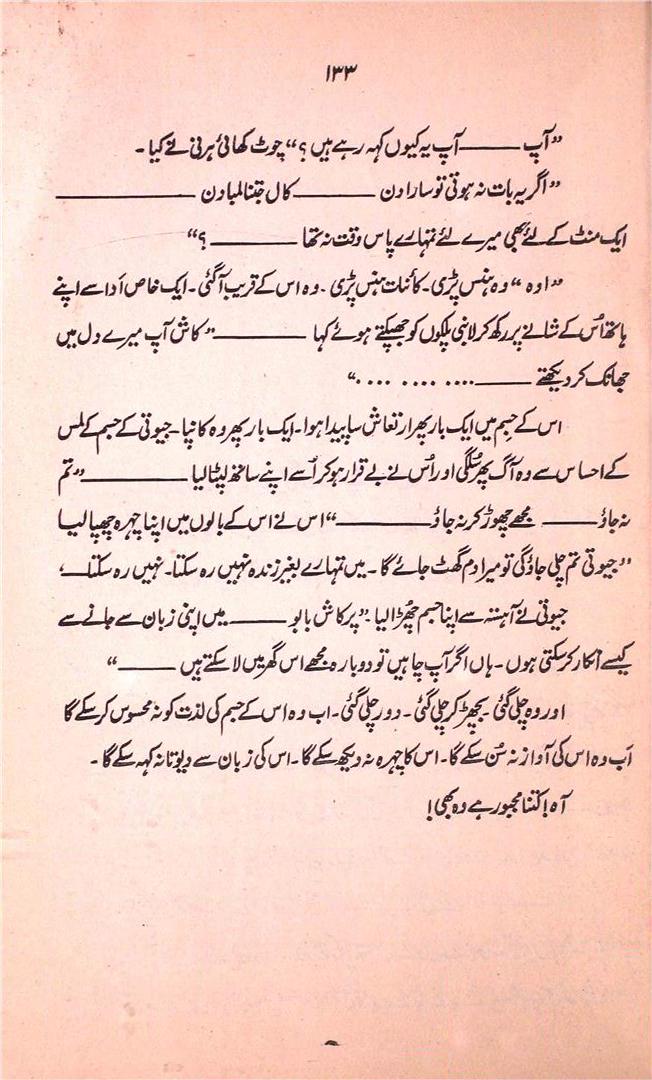 ۱۳۳
”آپ ——— آپ یہ کیوں کہہ رہے ہیں؟“ چوٹ کھائی ہرنی نے کہا۔
”اگر یہ بات نہ ہوتی تو سارا دن ——— کال جتنا لمبا دن ———
ایک منٹ کے لئے بھی میرے لئے تمہارے پاس وقت نہ تھا ———؟“
”اوہ“ وہ ہنس پڑی۔ کائنات ہنس پڑی۔ وہ اس کے قریب آ گئی۔ ایک خاص اَدا سے اپنے
ہاتھ اُس کے شانے پر رکھ کر لانبی پلکوں کو جھپکتے ہوئے کہا ——— ”کاش آپ میرے دل میں
جھانک کر دیکھتے ——— .... .... ....“
اس کے جسم میں ایک بار پھر ارتعاش سا پیدا ہوا۔ ایک بار پھر وہ کانپا۔ جیوتی کے جسم کے لمس
کے احساس سے وہ آگ پھر سُلگی اور اُس نے بے قرار ہو کر اُسے اپنے ساتھ لپٹا لیا ——— ”تم
نہ جاؤ ——— مجھے چھوڑ کر نہ جاؤ ———“ اس نے اس کے بالوں میں اپنا چہرہ چھپا لیا
”جیوتی تم چلی جاؤ گی تو میرا دم گھٹ جائے گا۔ میں تمہارے بغیر زندہ نہیں رہ سکتا۔ نہیں رہ سکتا ——“
جیوتی نے آہستہ سے اپنا جسم چھڑا لیا۔ ”پرکاش بابو ——— میں اپنی زبان سے جانے سے
کیسے انکار کر سکتی ہوں۔ ہاں اگر آپ چاہیں تو دوبارہ مجھے اس گھر میں لا سکتے ہیں ———“
اور وہ چلی گئی۔ بچھڑ کر چلی گئی۔ دور چلی گئی۔ اب وہ اس کے جسم کی لذت کو نہ محسوس کر سکے گا
اَب وہ اس کی آواز نہ سُن سکے گا۔ اس کا چہرہ نہ دیکھ سکے گا۔ اس کی زبان سے دیوتا نہ کہہ سکے گا۔
آہ! کتنا مجبور ہے وہ بھی!